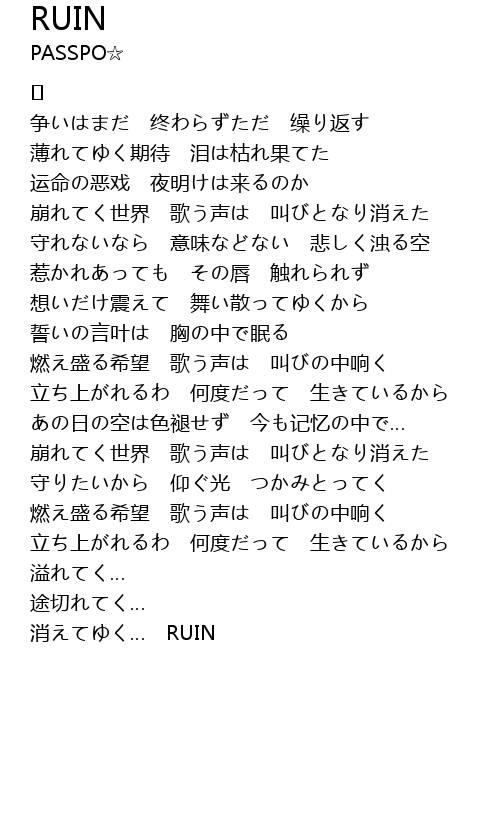 RUIN
PASSPO☆
[]
争いはまだ　终わらずただ　缲り返す
薄れてゆく期待　泪は枯れ果てた
运命の恶戏　夜明けは来るのか
崩れてく世界　歌う声は　叫びとなり消えた
守れないなら　意味などない　悲しく浊る空
惹かれあっても　その唇　触れられず
想いだけ震えて　舞い散ってゆくから
誓いの言叶は　胸の中で眠る
燃え盛る希望　歌う声は　叫びの中响く
立ち上がれるわ　何度だって　生きているから
あの日の空は色褪せず　今も记忆の中で…
崩れてく世界　歌う声は　叫びとなり消えた
守りたいから　仰ぐ光　つかみとってく
燃え盛る希望　歌う声は　叫びの中响く
立ち上がれるわ　何度だって　生きているから
溢れてく…
途切れてく…
消えてゆく…　RUIN